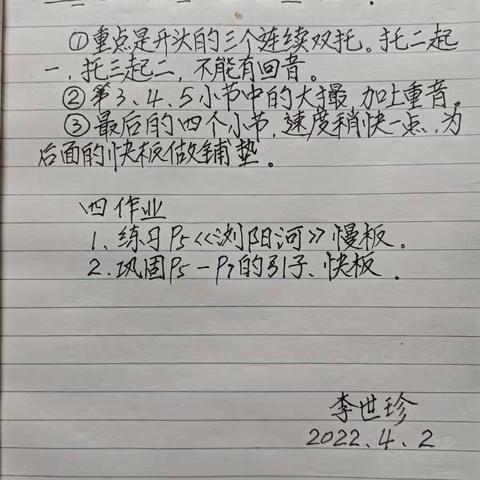 ①重点是开头的三个连续双托。托二起
一,托三起二,不能有回音。
②第3、4、5小节中的大撮,加上重音。
③最后的四个小节,速度稍快一点,为
后面的快板做铺垫。
四作业
1、练习P5《浏阳河》慢板。
2、巩固P5—P7的引子、快板.
李世珍
2022.4.2